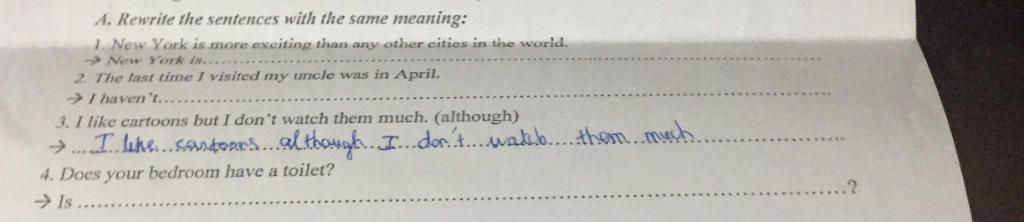 A. Rewrite the sentences with the same meaning:
1. New York is more exciting than any other cities in the world.
→ New York is....................
2. The last time I visited my uncle was in April.
→ I haven't....................
3. I like cartoons but I don't watch them much. (although)
→ ... I like cartoons although I don't watch them much ....................
4. Does your bedroom have a toilet?
→ Is ....................?